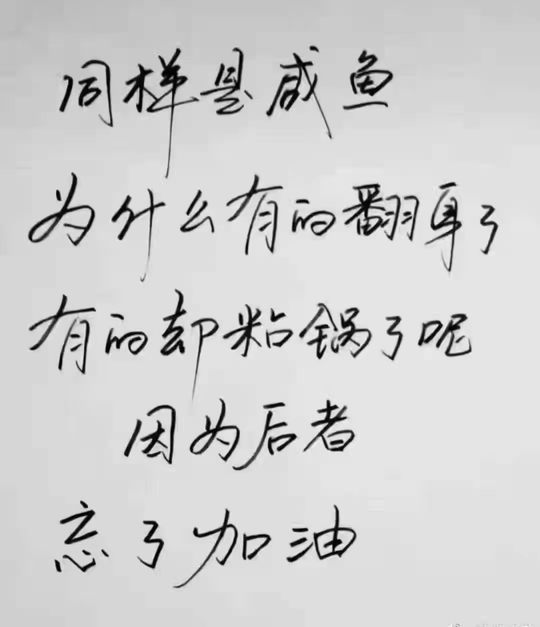 同样是咸鱼
为什么有的翻身了
有的却粘锅了呢
因为后者
忘了加油